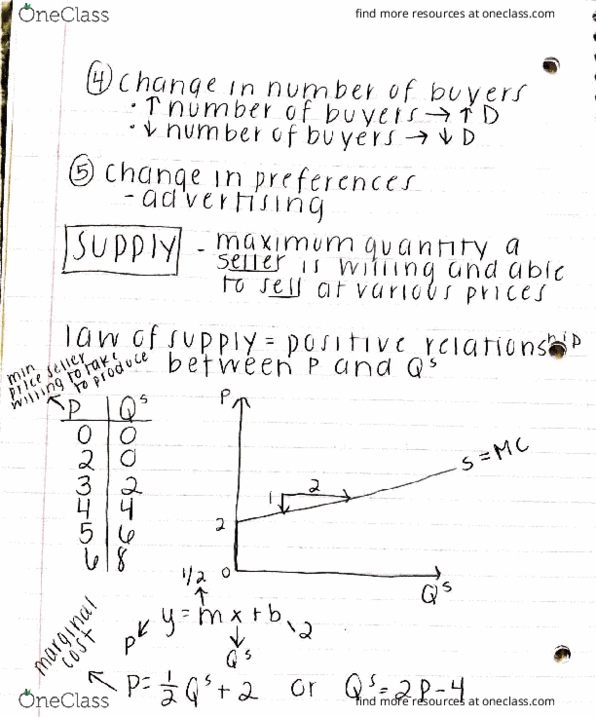 OneClass
find more resources at oneclass.com
④ change in number of buyers
· ↑ number of buyers → ↑ D
· ↓ number of buyers → ↓ D
⑤ change in preferences
- advertising
SUPPLY - maximum quantity a
seller is willing and able
to sell at various prices
law of supply = positive relationship
between P and Qˢ
min
price seller
willing to take
to produce
P Qˢ
0 0
2 0
3 2
4 4
5 6
6 8
P
S=MC
1 2
2
0
Qˢ
1/2
y = mx + b
P
Qˢ
2
marginal
cost
P = 1/2 Qˢ + 2 or Qˢ = 2P - 4
OneClass
find more resources at oneclass.com